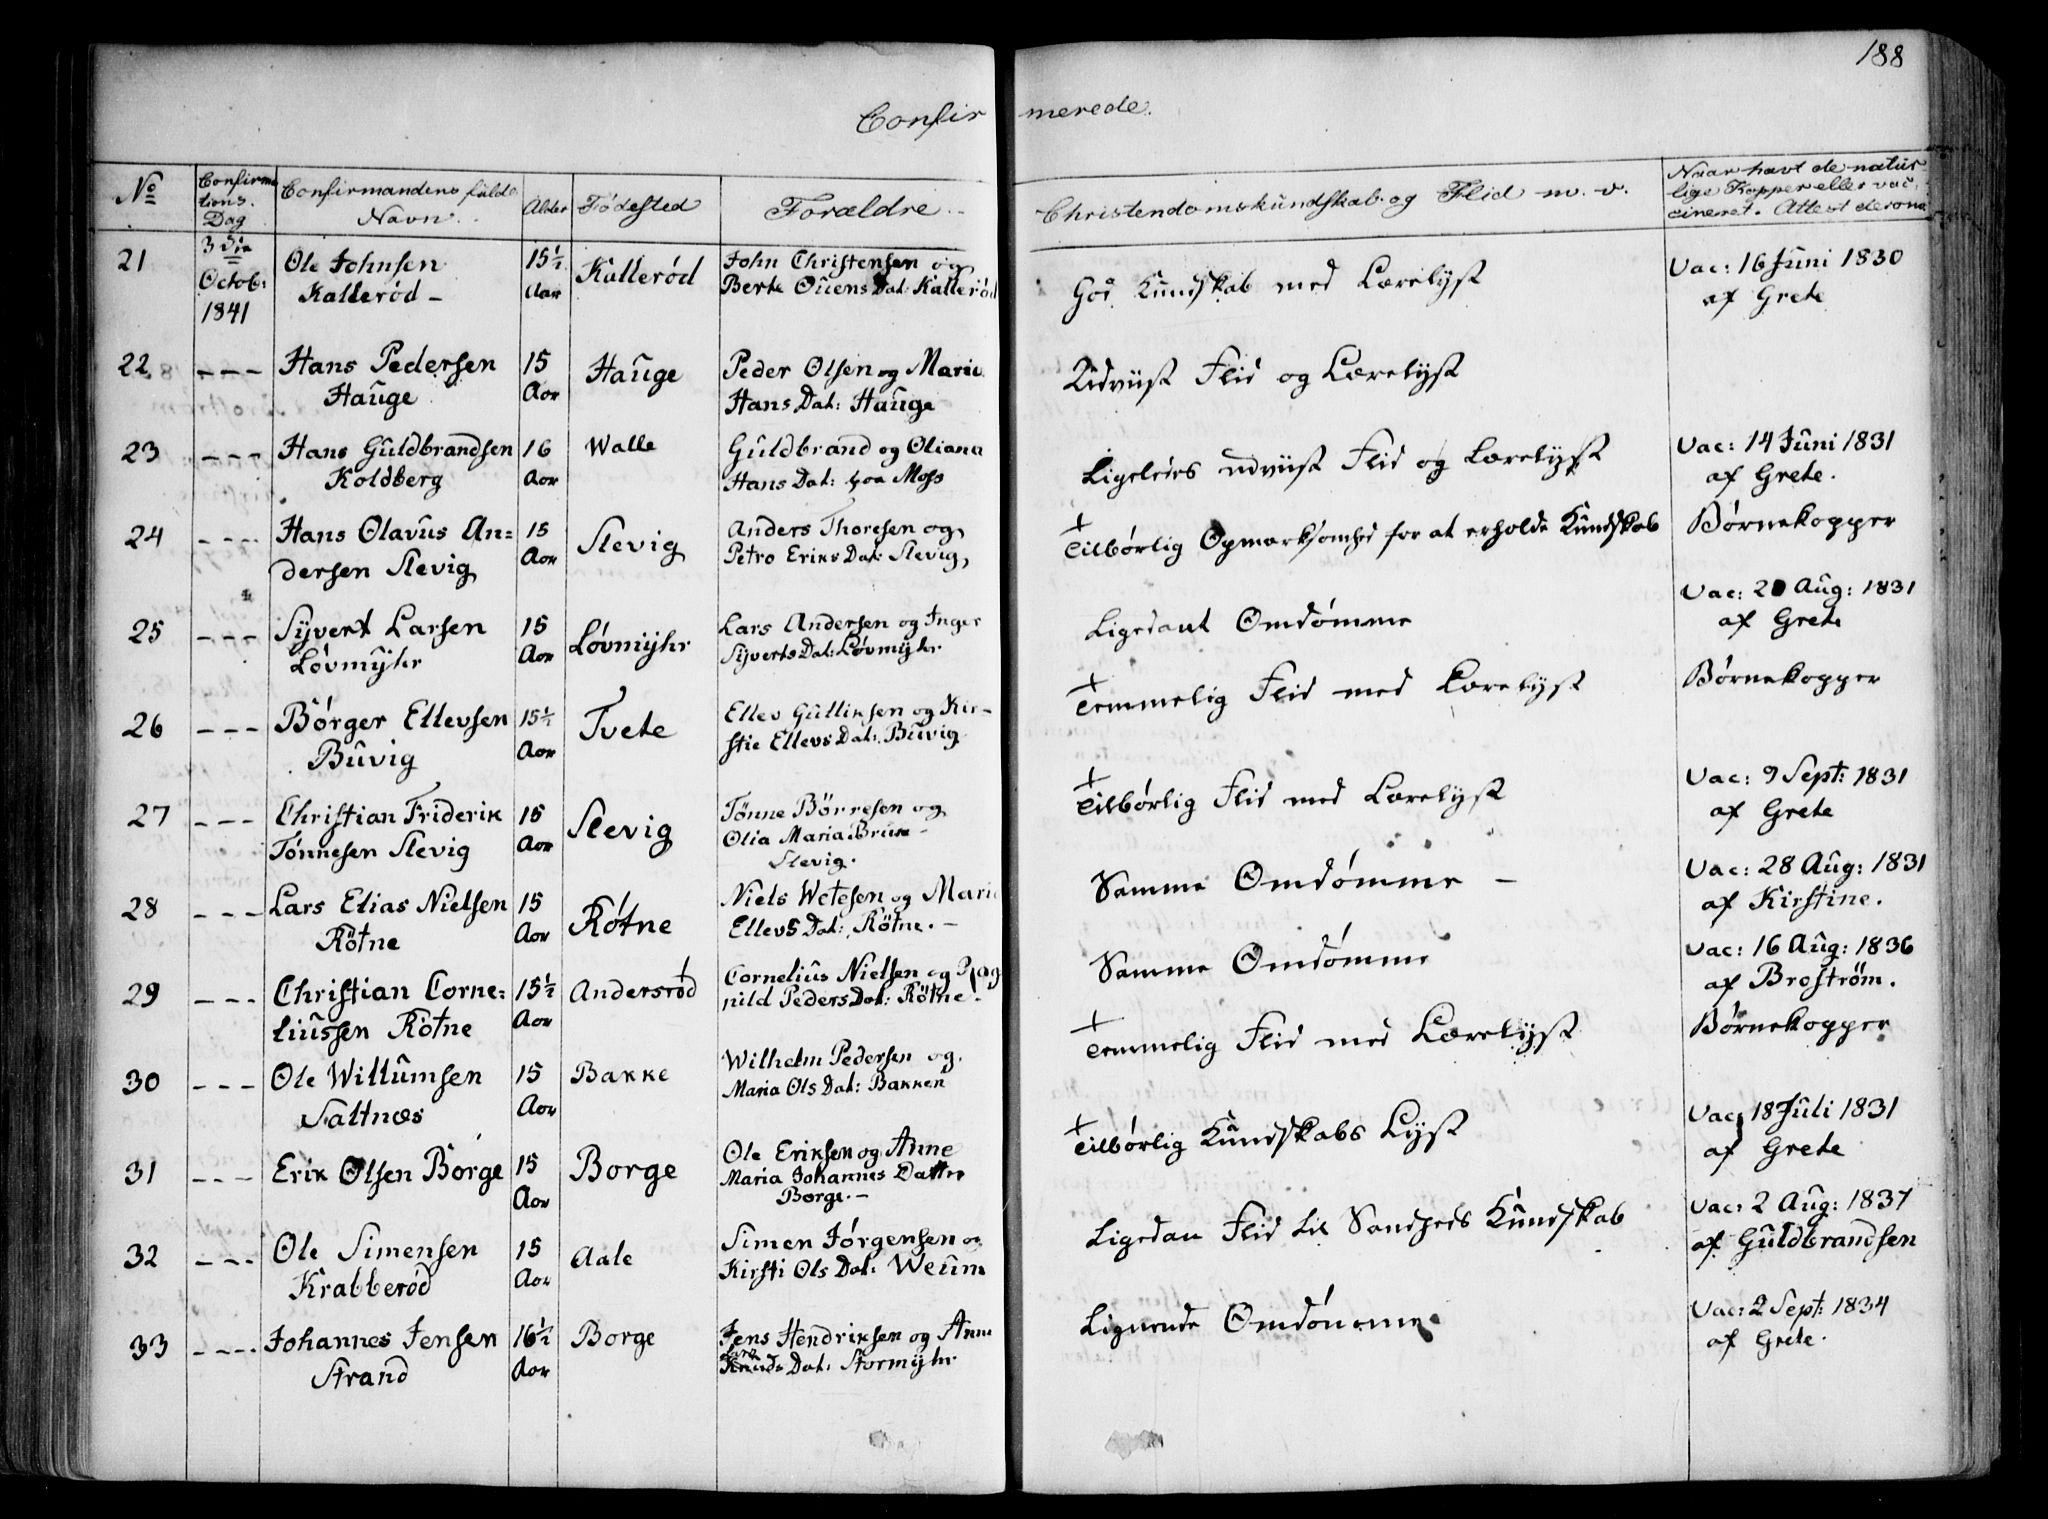 188
Confirmerede.
No
Confirmations Dag
Confirmandens fulde Navn.
Alder
Fødested
Forældre
Christendomskundskab og Flid m. v.
Naar havt de naturlige Kopper eller vacineret. Attest derom
21 3die Octob: 1841 Ole Johnsen Kallerød 15½ Aar Kallerød John Christensen og Berte Ouens Dat: Kallerød God Kundskab med Lærelyst Vac: 16 Juni 1830 af Grete
22 --- Hans Pedersen Hauge 15 Aar Hauge Peder Olsen og Maria Hans Dat: Hauge Udviist Flid og Lærelyst
23 --- Hans Guldbrandsen Koldberg 16 Aar Walle Guldbrand og Oliana Hans Dat: paa Moss Ligeledes udviist Flid og Lærelyst Vac: 14 Juni 1831 af Grete.
24 --- Hans Olavus Andersen Slevig 15 Aar Slevig Anders Thoresen og Petro Eriks Dat: Slevig Tilbørlig Opmærksomhed for at erholde Kundskab Børnekopper
25 --- Syvert Larsen Løvmyhr 15 Aar Løvmyhr Lars Andersen og Inger Syverts Dat: Løvmyhr Ligedant Omdømme Vac: 20 Aug: 1831 af Grete
26 --- Børger Ellevsen Buvig 15½ Aar Tvete Ellev Gulliksen og Kirstie Ellevs Dat: Buvig Temmelig Flid med Lærelyst Børnekopper
27 --- Christian Friderik Tønnesen Slevig 15 Aar Slevig Tønne Børresen og Olia Maria Brun Slevig. Tilbørlig Flid med Lærelyst Vac: 9 Sept: 1831 af Grete
28 --- Lars Elias Nielsen Røtne 15 Aar Røtne Niels Wetesen og Maria Ellevs Dat: Røtne. Samme Omdømme Vac: 28 Aug: 1831 af Kirstine.
29 --- Christian Corneliussen Røtne 15½ Aar Andersrød Cornelius Nielsen og Ragnild Peders Dat: Røtne. Samme Omdømme Vac: 16 Aug: 1836 af Broström.
30 --- Ole Willumsen Saltnæs 15 Aar Bakke Wilhelm Pedersen og Maria Ols Dat: Bakken Temmelig Flid med Lærelyst Børnekopper
31 --- Erik Olsen Borge 15 Aar Borge Ole Eriksen og Anne Maria Johannes Datter Borge. Tilbørlig Kundskabs Lyst Vac: 18 Juli 1831 af Grete
32 --- Ole Simensen Krabberød 15 Aar Aale Simen Jørgensen og Kirsti Ols Dat: Weum Ligedan Flid til Sandheds Kundskab Vac: 2 Aug: 1837 af Guldbrandsen
33 --- Johannes Jensen Strand 16½ Aar Borge Jens Hendriksen og Anne Knuds Dat: Stormyhr Lignende Omdømme Vac: 2 Sept: 1834 af Grete.